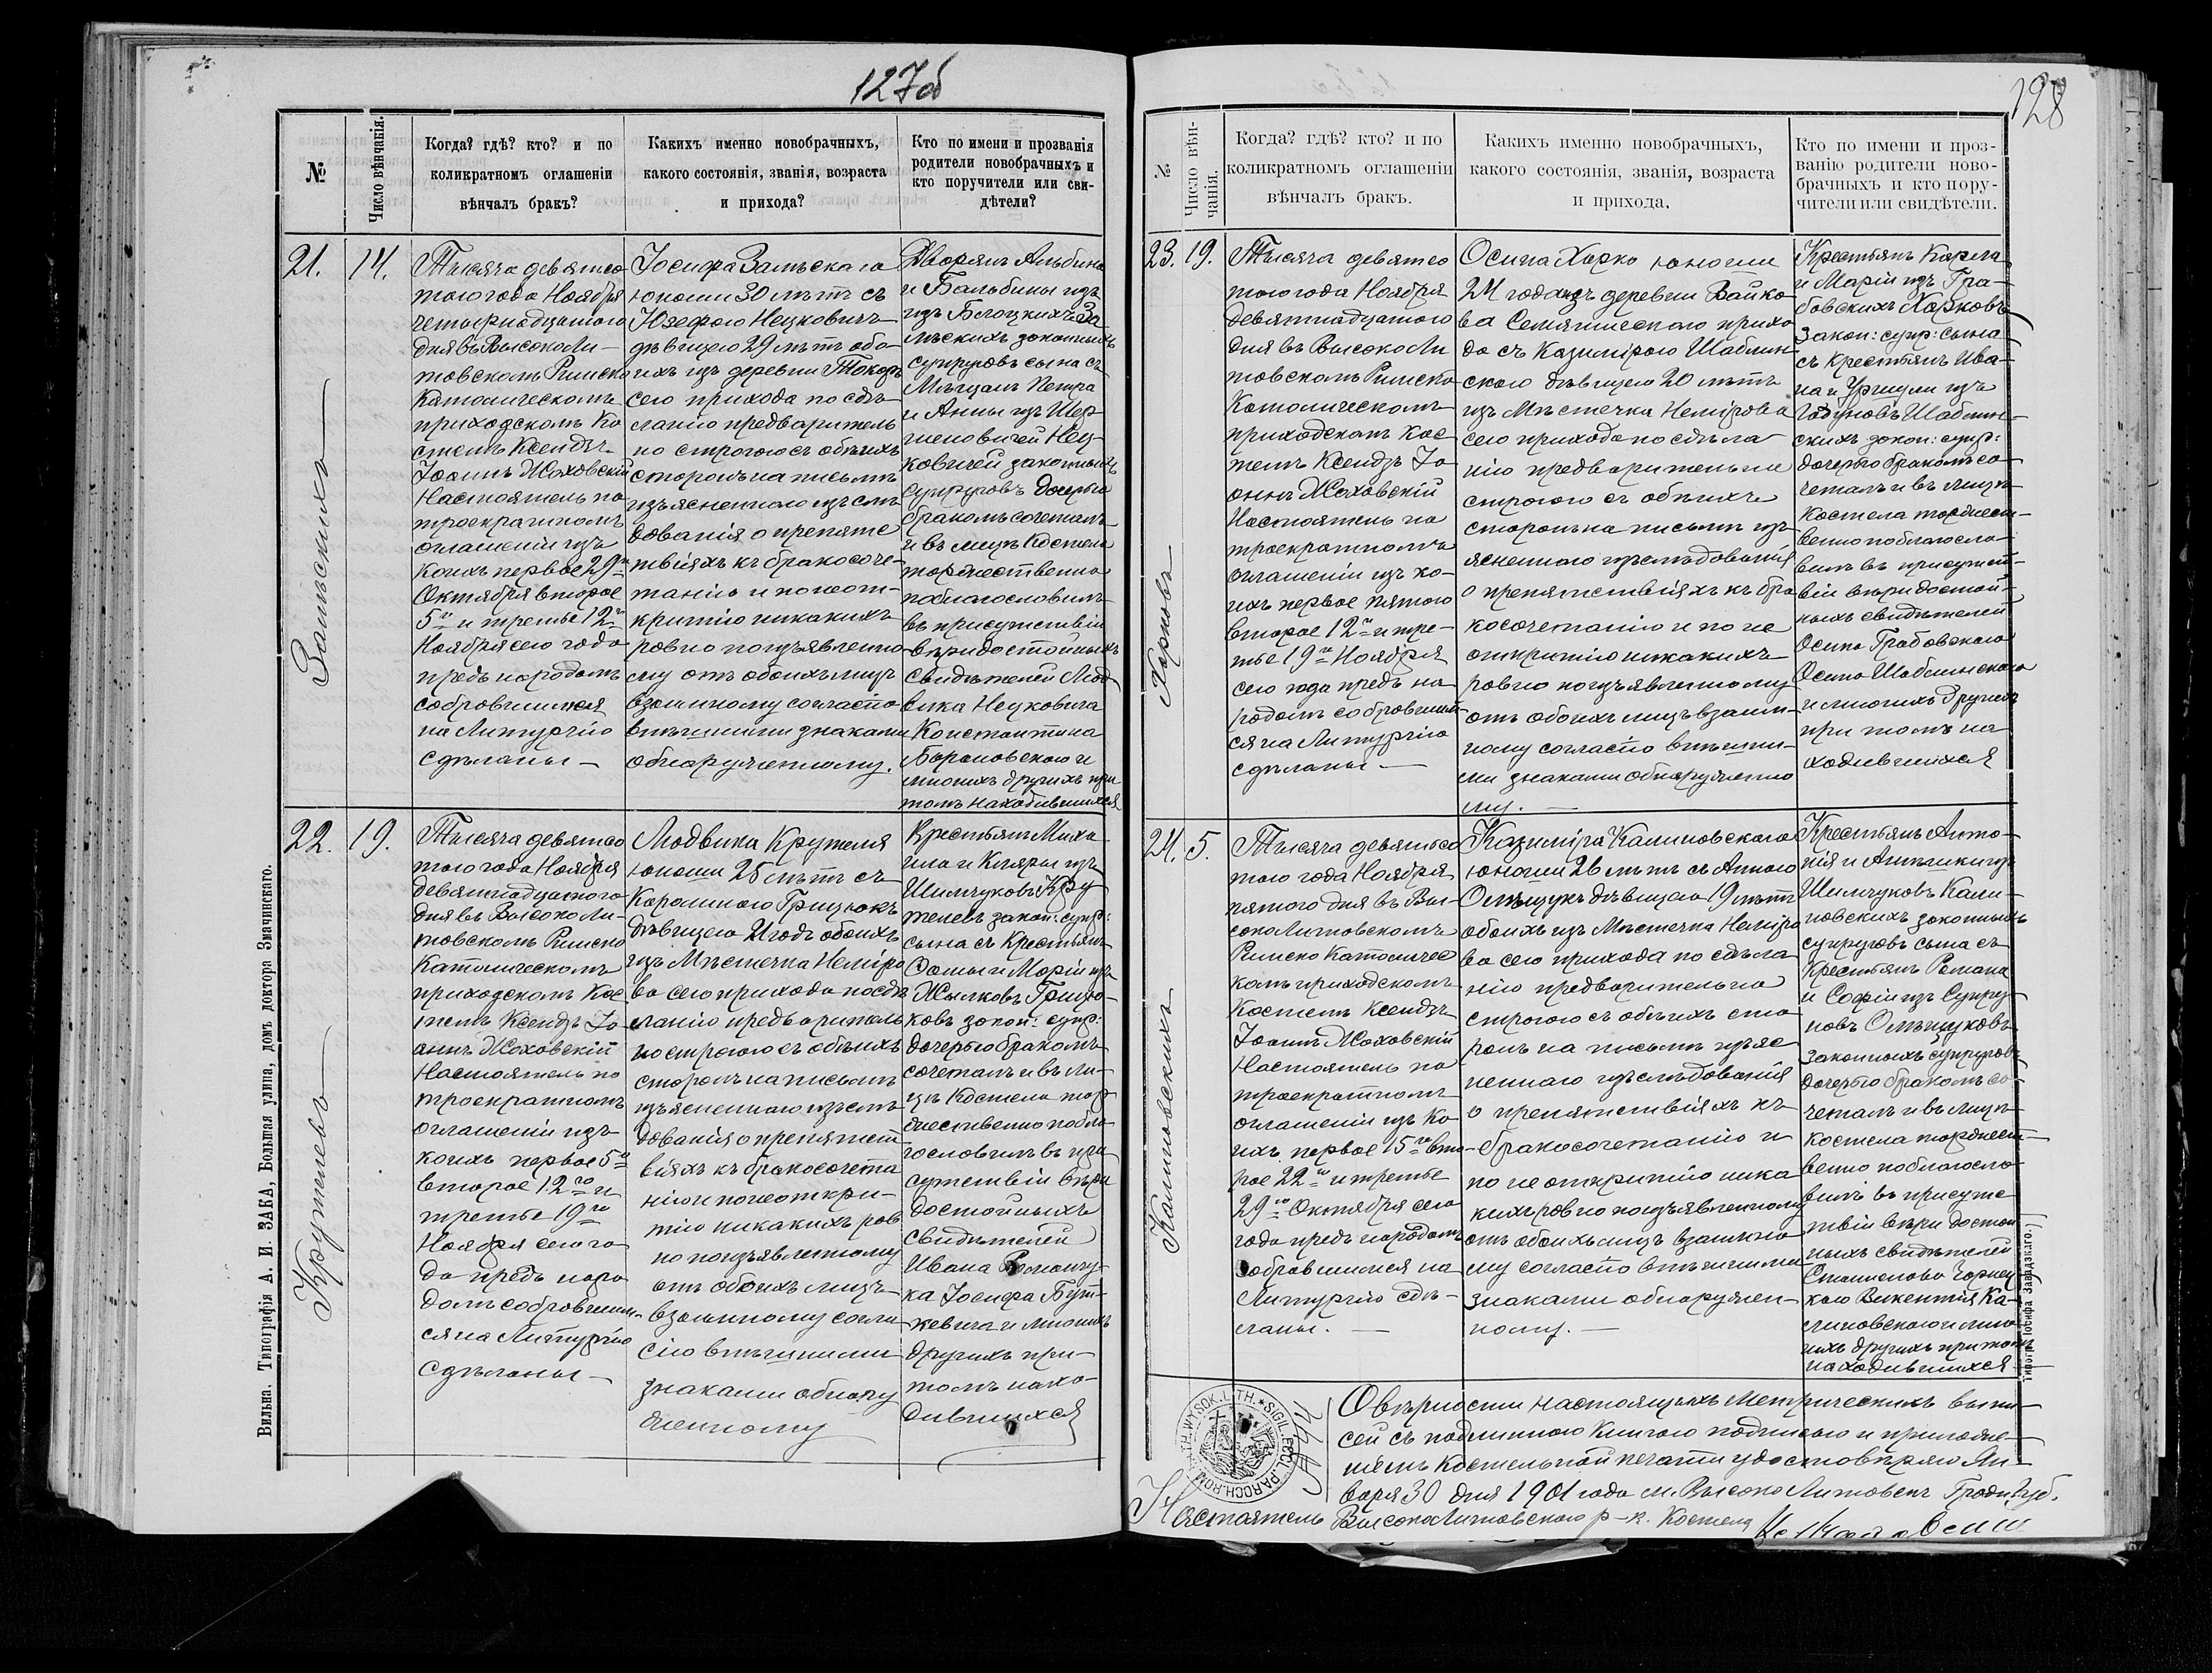 127б
№
Число вѣнчанія.
Когда? гдѣ? кто? и по
коликратномъ оглашеніи
вѣнчалъ бракъ?
Какихъ именно новобрачныхъ,
какого состоянія, званія, возраста
и прихода?
Кто по имени и прозванія
родители новобрачныхъ и
кто поручители или сви-
дѣтели?
21.
14.
Залѣскихъ
Тысяча девятсо
таго года Ноября
четырнадцатаго
дня въ Высоко Ли-
товскомъ Римско
Католическомъ
приходскомъ Ко
стелѣ Ксендзъ
Іоаннъ Жаховскій
Настоятель по
троекратномъ
оглашеніи изъ
коихъ первое 29го
Октября второе
5го и третье 12го
Ноября сего года
предъ народомъ
собравшимся
на Литургію
сдѣланы —
Іосифа Залѣскаго
юношу 30 лѣтъ съ
Юзефою Нецковичъ
дѣвицею 29 лѣтъ обо
ихъ изъ деревни Токаръ
сего прихода по сдѣ-
ланію предваритель
но строгаго съ обѣихъ
сторонъ на письмѣ
изъясненнаго изслѣ
дованія о препятс
твіяхъ къ бракосоче-
танію и по неот-
крытію никакихъ
ровно по изъявленно
му отъ обоихъ лицъ
взаимному согласію
внѣшними знаками
обнаруженному.
Дворянъ Альбина
и Бальбины изъ
изъ Белоцкихъ За
лѣскихъ законныхъ
супруговъ сына съ
Мѣщанъ Петра
и Анны изъ Шер
шеновичей Нец-
ковичей законныхъ
супруговъ дочерью
бракомъ сочеталъ
и въ лицѣ Костела
торжественно
поблагословилъ
въ присутствіи
вѣридостойныхъ
свидѣтелей Люд
вика Нецковича
Константина
Барановскаго и
многихъ другихъ при
томъ находившихся
22.
19.
Крутелевъ
Тысяча девятсо
таго года Ноября
девятнадцатаго
дня въ Высоко Ли-
товскомъ Римско
Католическомъ
приходскомъ Кос
телѣ Ксендзъ Іо
аннъ Жаховскій
Настоятель по
троекратномъ
оглашеніи изъ
коихъ первое 5го
второе 12го и
третье 19го
Ноября сего го
да предъ наро
домъ собравшим-
ся на Литургію
сдѣланы —
Людвика Крутеля
юношу 25 лѣтъ съ
Каролиною Грицюкъ
дѣвицею 21 годъ обоихъ
изъ Мѣстечка Неміро
ва сего прихода по сдѣ
ланію предваритель
но строгаго съ обѣихъ
сторонъ на письмѣ
изъясненнаго изслѣ
дованія о препятст
віяхъ къ бракосочета
нію и по неоткры-
тію никакихъ ров
но по изъявленному
отъ обоихъ лицъ
взаимному согла
сію внѣшними
знаками обнару
женному
Крестьянъ Миха
ила и Клары изъ
Шимчуковъ Кру
телей закон: супр:
сына съ Крестьянъ
Фомы и Маріи изъ
Жылковъ Грицю-
ковъ закон: супр:
дочерью бракомъ
сочеталъ и въ ли-
цѣ Костела тор
жественно побла
гословилъ въ при
сутствіи вѣри
достойныхъ
свидѣтелей
Ивана Романчу-
ка Іосифа Бут-
кевича и многихъ
другихъ при-
томъ нахо-
дившихся
Вильна. Типографія А. И. ЗАКА, Большая улица, домъ доктора Значинскаго.
128
№
Число вѣн-
чанія.
Когда? гдѣ? кто? и по
коликратномъ оглашеніи
вѣнчалъ бракъ.
Какихъ именно новобрачныхъ,
какого состоянія, званія, возраста
и прихода.
Кто по имени и проз-
ванію родители ново-
брачныхъ и кто пору-
чители или свидѣтели.
23.
19.
Харковъ
Тысяча девятсо
таго года Ноября
девятнадцатаго
дня въ Высоко Ли
товскомъ Римско
Католическомъ
приходскомъ Кос
телѣ Ксендзъ Іо
аннъ Жаховскій
Настоятель по
троекратномъ
оглашеніи изъ ко-
ихъ первое пятаго
второе 12го и тре-
тье 19го Ноября
сего года предъ на
родомъ собравшим-
ся на Литургію
сдѣланы. —
Осипа Харко юношу
24 года изъ деревни Войко-
ва Семятискаго прихо
да съ Казимірою Шаблин-
скою дѣвицею 20 лѣтъ
изъ Мѣстечка Немірова
сего прихода по сдѣла
нію предварительно
строгаго съ обѣихъ
сторонъ на письмѣ изъ
ясненнаго изслѣдованія
о препятствіяхъ къ бра
косочетанію и по не
открытію никакихъ
ровно по изъявленному
отъ обоихъ лицъ взаим-
ному согласію внѣшни-
ми знаками обнаруженно
му. —
Крестьянъ Карла
и Маріи изъ Гра-
бовскихъ Харковъ
закон: супр: сына
съ Крестьянъ Ива-
на и Уршули изъ
Шаблин-
скихъ закон: супр:
дочерью бракомъ со
четалъ и въ лицѣ
Костела торжест-
венно поблагосло
вилъ въ присутст-
віи вѣридостой-
ныхъ свидѣтелей
Осипа Грабовскаго
Осипа Шаблинскаго
и многихъ другихъ
при томъ на
ходившихся
24.
5.
Калиновскихъ
Тысяча девятьсо
таго года Ноября
пятаго дня въ Вы-
соко Литовскомъ
Римско Католичес
комъ приходскомъ
Костелѣ Ксендзъ
Іоаннъ Жаховскій
Настоятель по
троекратномъ
оглашеніи изъ ко
ихъ первое 15го вто-
рое 22го и третье
29го Октября сего
года предъ народомъ
собравшимся на
Литургію сдѣ-
ланы. —
Казиміра Калиновскаго
юношу 26 лѣтъ съ Анною
Олѣщукъ дѣвицею 19 лѣтъ
обоихъ изъ Мѣстечка Неміро
ва сего прихода по сдѣла
нію предварительно
строгаго съ обѣихъ сто
ронъ на письмѣ изъяс
неннаго изслѣдованія
о препятствіяхъ къ
бракосочетанію и
по не открытію ника
кихъ ровно по изъявленному
отъ обоихъ лицъ взаимно
му согласію внѣшними
знаками обнаружен-
ному. —
Крестьянъ Анто-
нія и Анѣлики изъ
Шимчуковъ Кали-
новскихъ законныхъ
супруговъ сына съ
Крестьянъ Романа
и Софіи изъ Супру-
новъ Олѣщуковъ
законныхъ супруговъ
дочерью бракомъ со-
четалъ и въ лицѣ
костела торжест-
венно поблагосло
вилъ въ присутс
твіи вѣри достой
ныхъ свидѣтелей
Станислава Чарнец
каго Викентія Ка-
линовскаго и мно
гихъ другихъ притомъ
находившихся
О вѣрности настоящихъ Метрическихъ выпи-
сей съ подлинною Книгою подписью и приложе-
ніемъ Костельной печати удостовѣряю Ян-
варя 30 дня 1901 года м. Высоко Литовскъ Гродн. Губ.
Настоятель Высоко Литовскаго р-к. Костела
SIGIL. ECCL. PAROCH. ROM. CATH. WYSOK. LITH.